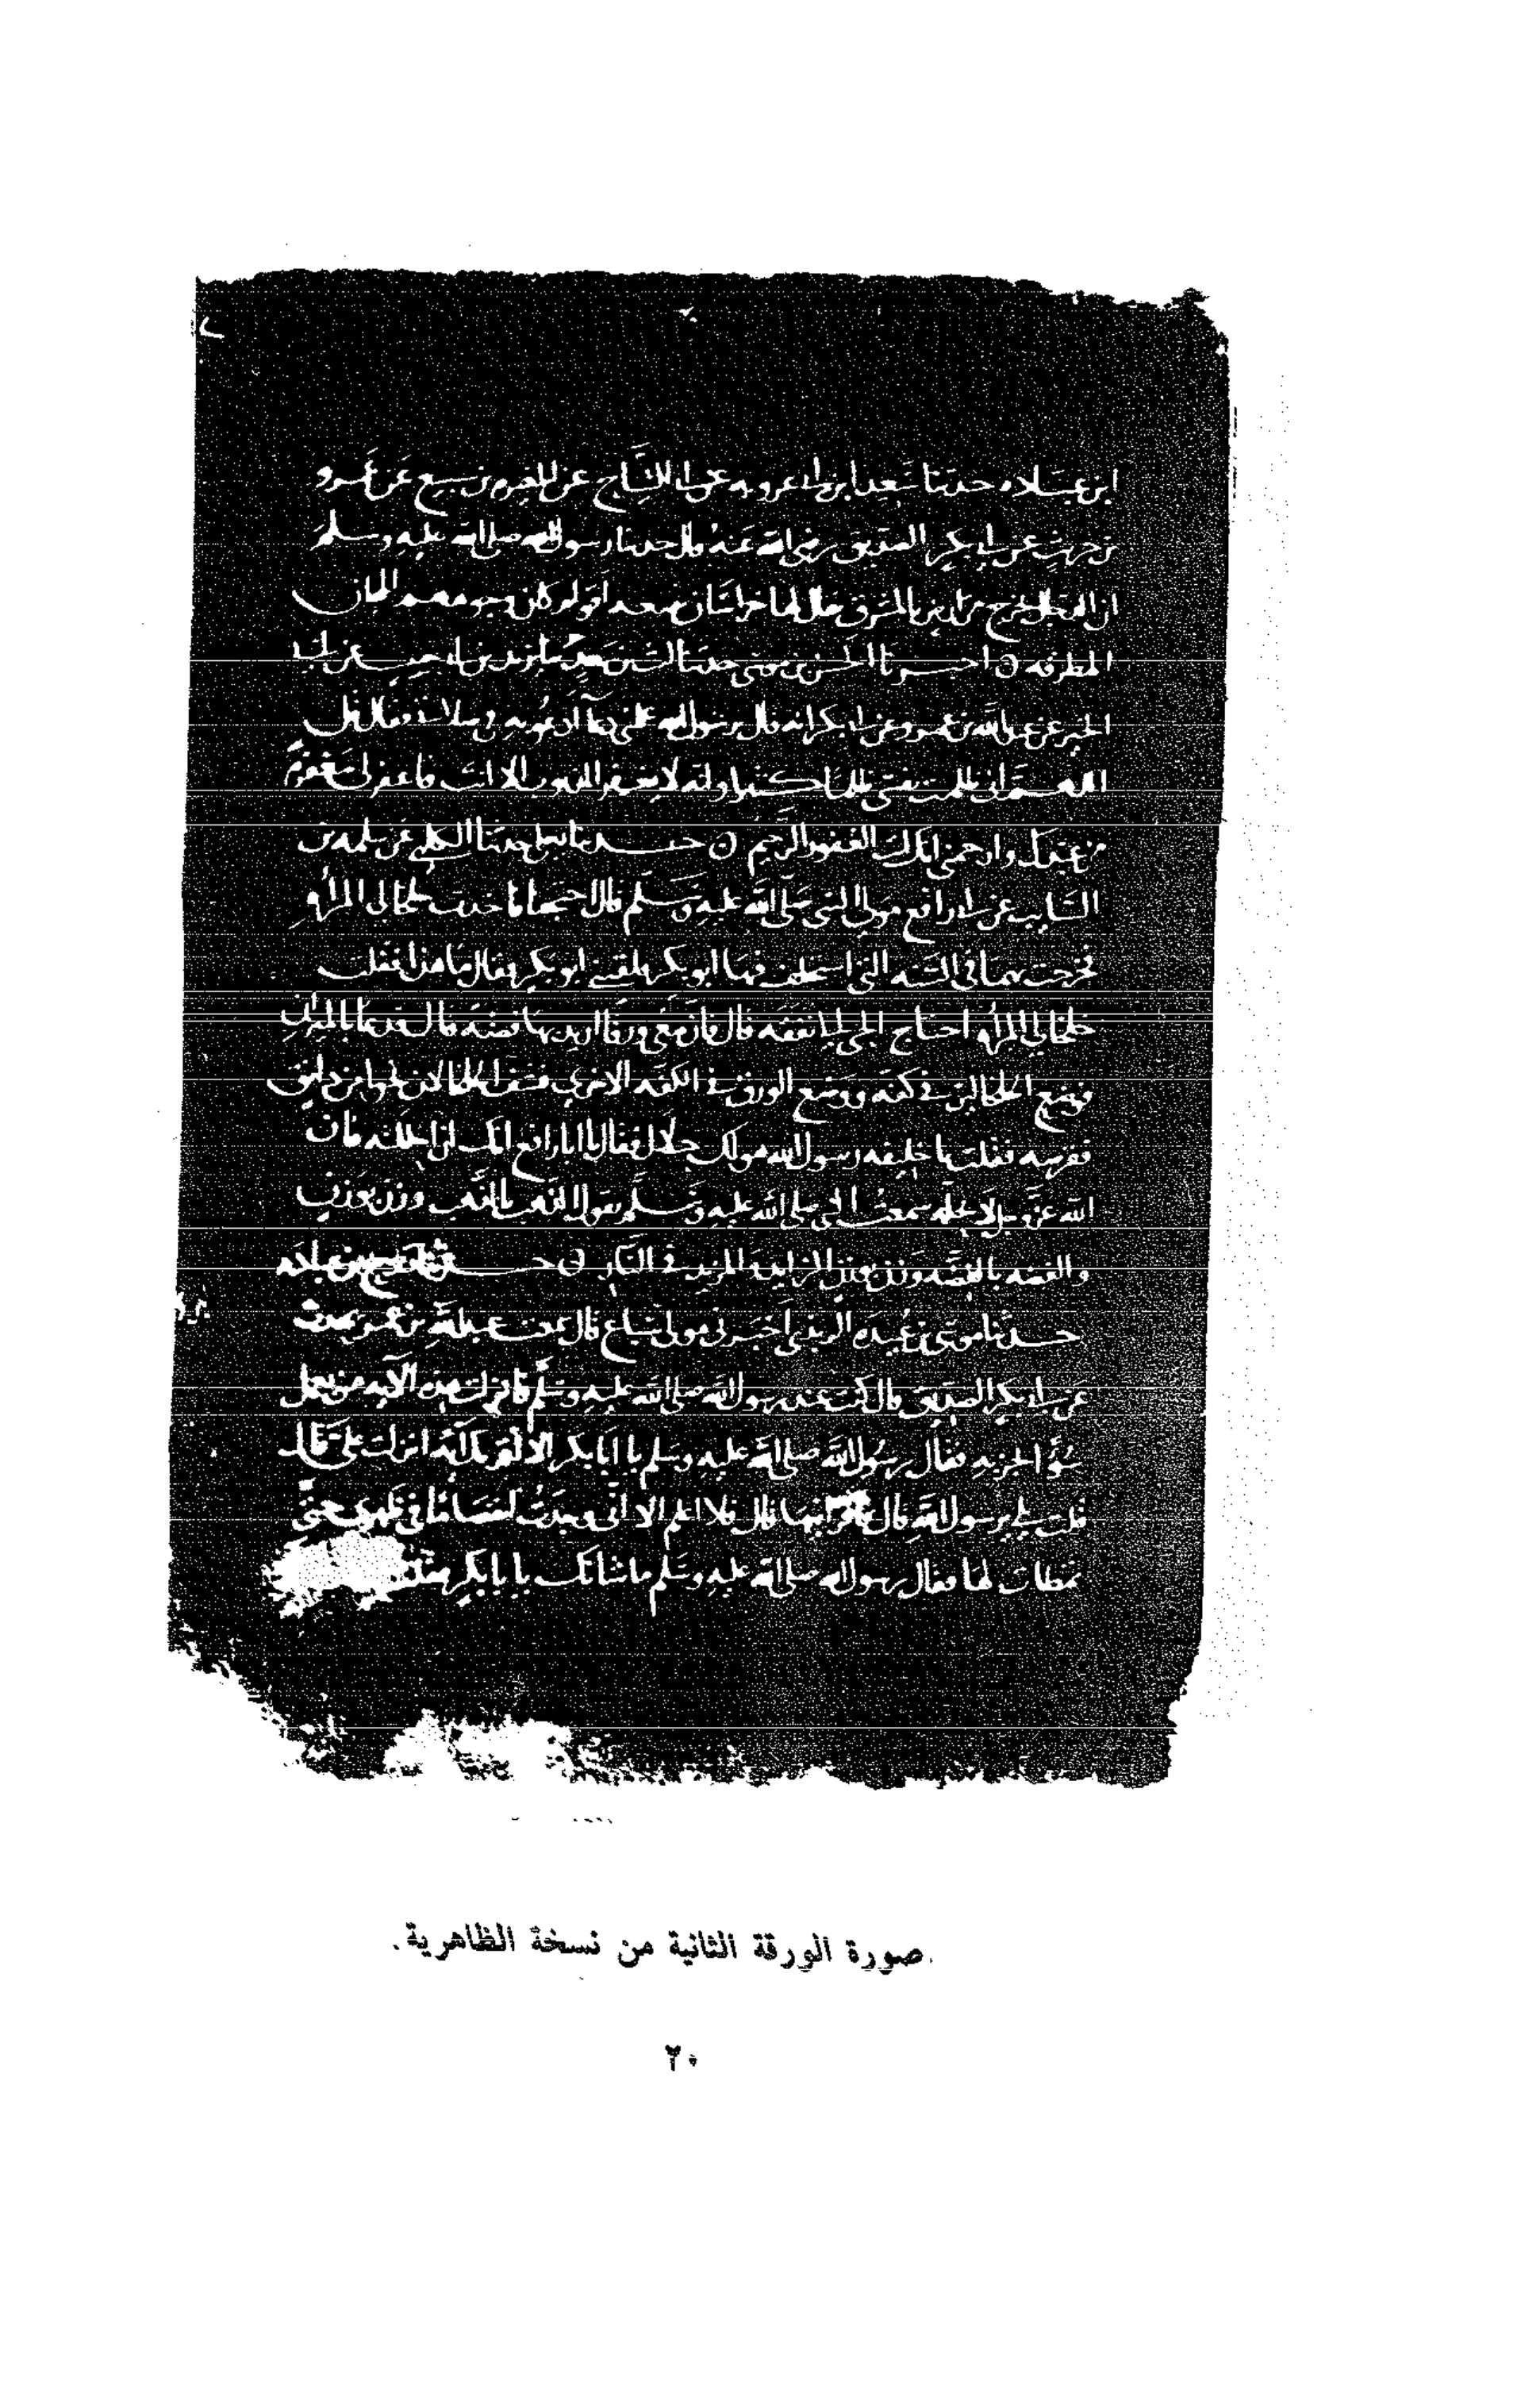 ابن عباده حدثنا سعيد ابن ابى عروبه عن ابى التياح عن المغيره بن سبيع عن عمرو
بن حريث عن ابى بكر الصديق رضى الله عنه قال حدثنا رسول الله صلى الله عليه وسلم
ان الدجال يخرج من ارض بالمشرق يقال لها خراسان يتبعه اقوام كان وجوههم المجان
المطرقه ه اخبرنا الحسن بن موسى حدثنا الليث بن سعد يزيد بن ابى حبيب عن ابى
الخير عن عبد الله بن عمرو عن ابى بكر انه قال يرسول الله علمنى دعآ ادعو به فى صلاتى فقال قل
اللهم انى ظلمت نفسى ظلما كثيرا وانه لا يغفر الذنوب الا انت فاغفر لى مغفرة
من عندك وارحمنى انك انت الغفور الرحيم ه حدثنا يعلى حدثنا الكلبى عن سلمه بن
السايب عن ابى رافع مولى النبى صلى الله عليه وسلم قال احتجنا فاخذت خلخالى المرأه
فخرجت بهما فى السنه التى استخلف فيها ابو بكر فلقينى ابو بكر فقال ما هذا فقلت
خلخالى المرأه احتاج الحى الى نفقه قال فان معى ورقا اريد بها فضه قال فدعا بالميزان
فوضع الخلخالين فى كفه ووضع الورق فى الكفه الاخرى فشف الخلخالان نحوا من دانق
فقرضه فقلت يا خليفه رسول الله هو لك حلال فقال يا ابا رافع انك ان احللته فان
الله عز وجل لا يحله سمعت النبى صلى الله عليه وسلم يقول الذهب بالذهب وزن بوزن
والفضه بالفضه وزن بوزن الزايد والمزيد فى النار ه حدثنا روح بن عباده
حدثنا موسى بن عبيده الربذى اخبرنى مولى سباع قال سمعت عبد الله بن عمر يحدث
عن ابى بكر الصديق قال كنت عند رسول الله صلى الله عليه وسلم فانزلت هذه الآيه من يعمل
سوءا يجز به فقال رسول الله صلى الله عليه وسلم يا ابا بكر الا اقريك آية انزلت على قال
قلت بلى يرسول الله قال فاقرانيها قال فلا اعلم الا انى وجدت انفصاما فى ظهرى حتى
تمطات لها فقال رسول الله صلى الله عليه وسلم ما شانك يا ابا بكر
صورة الورقة الثانية من نسخة الظاهرية.
٢٠